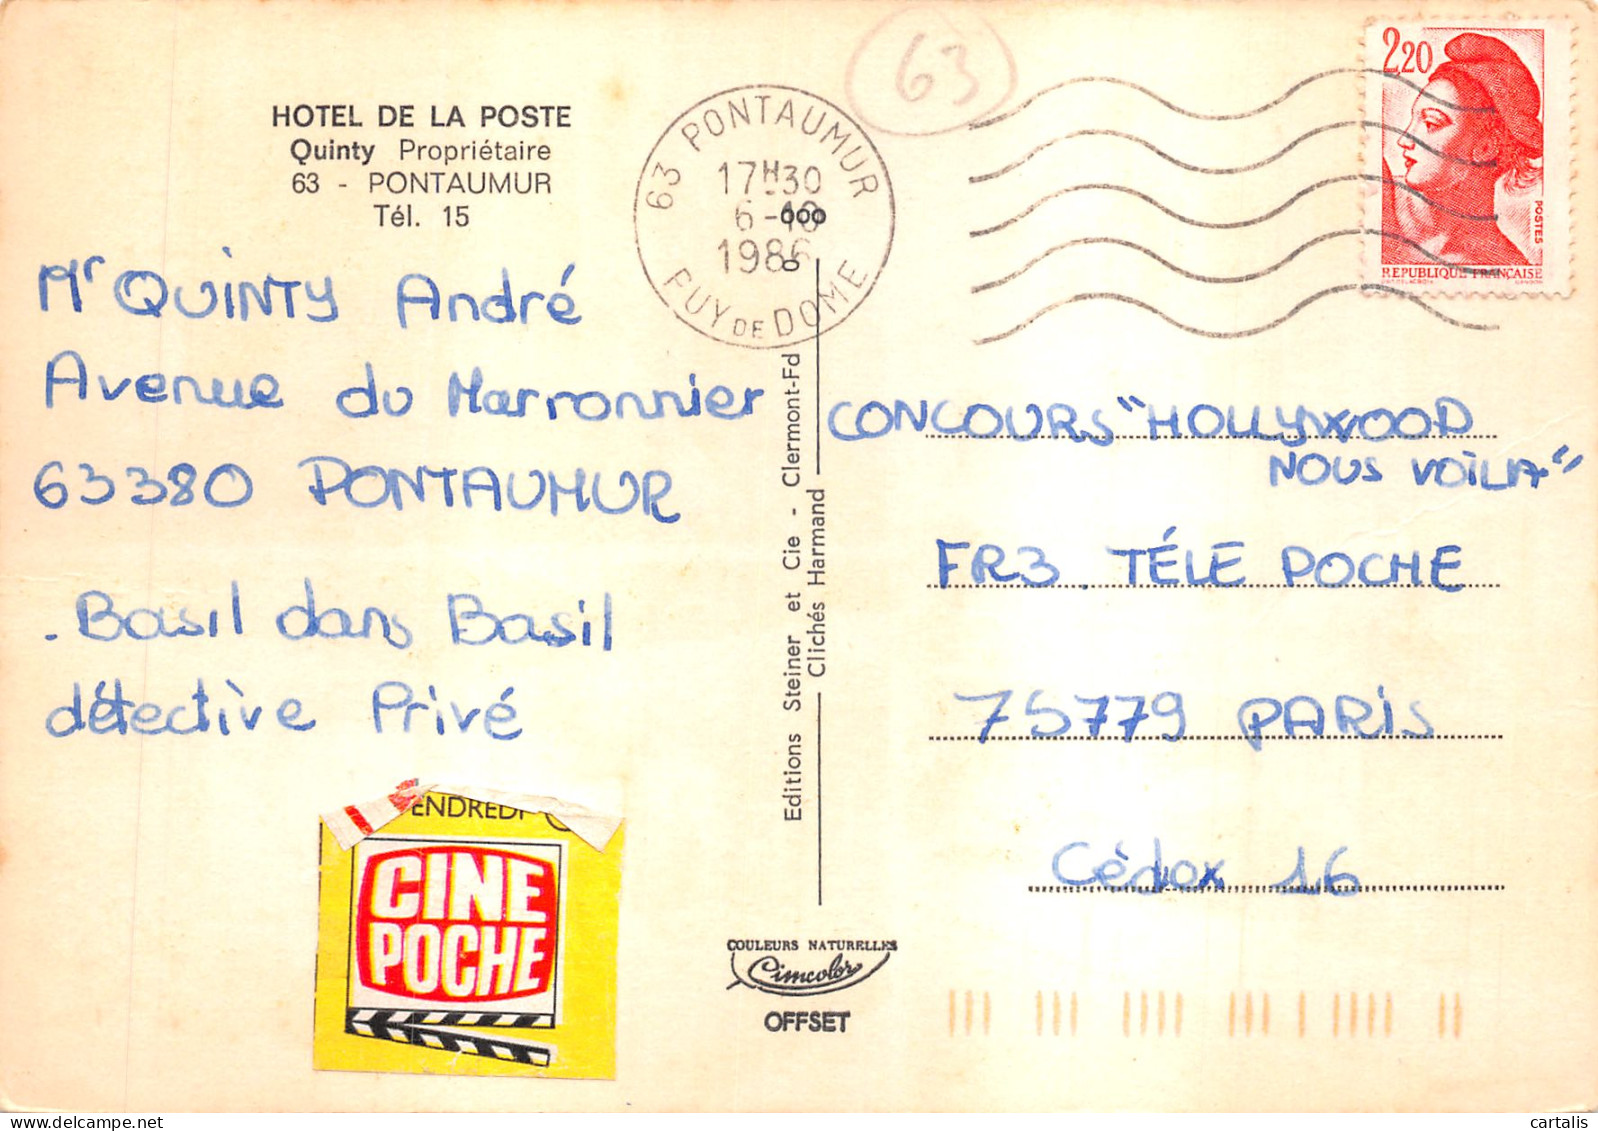 HOTEL DE LA POSTE
Quinty Propriétaire
63 - PONTAUMUR
Tél. 15
63 PONTAUMUR
17H30
6-10
1986
PUY DE DOME
63
2,20
POSTES
REPUBLIQUE FRANÇAISE
Mr QUINTY André
Avenue du Marronnier
63380 PONTAUMUR
. Basil dans Basil
détective Privé
ENDREDI
CINE
POCHE
Editions Steiner et Cie - Clermont-Fd
Clichés Harmand
CONCOURS "HOLLYWOOD
NOUS VOILA"
FR3. TÉLE POCHE
75779 PARIS
Cèdex 16
COULEURS NATURELLES
Cimcolor
OFFSET
cartalis